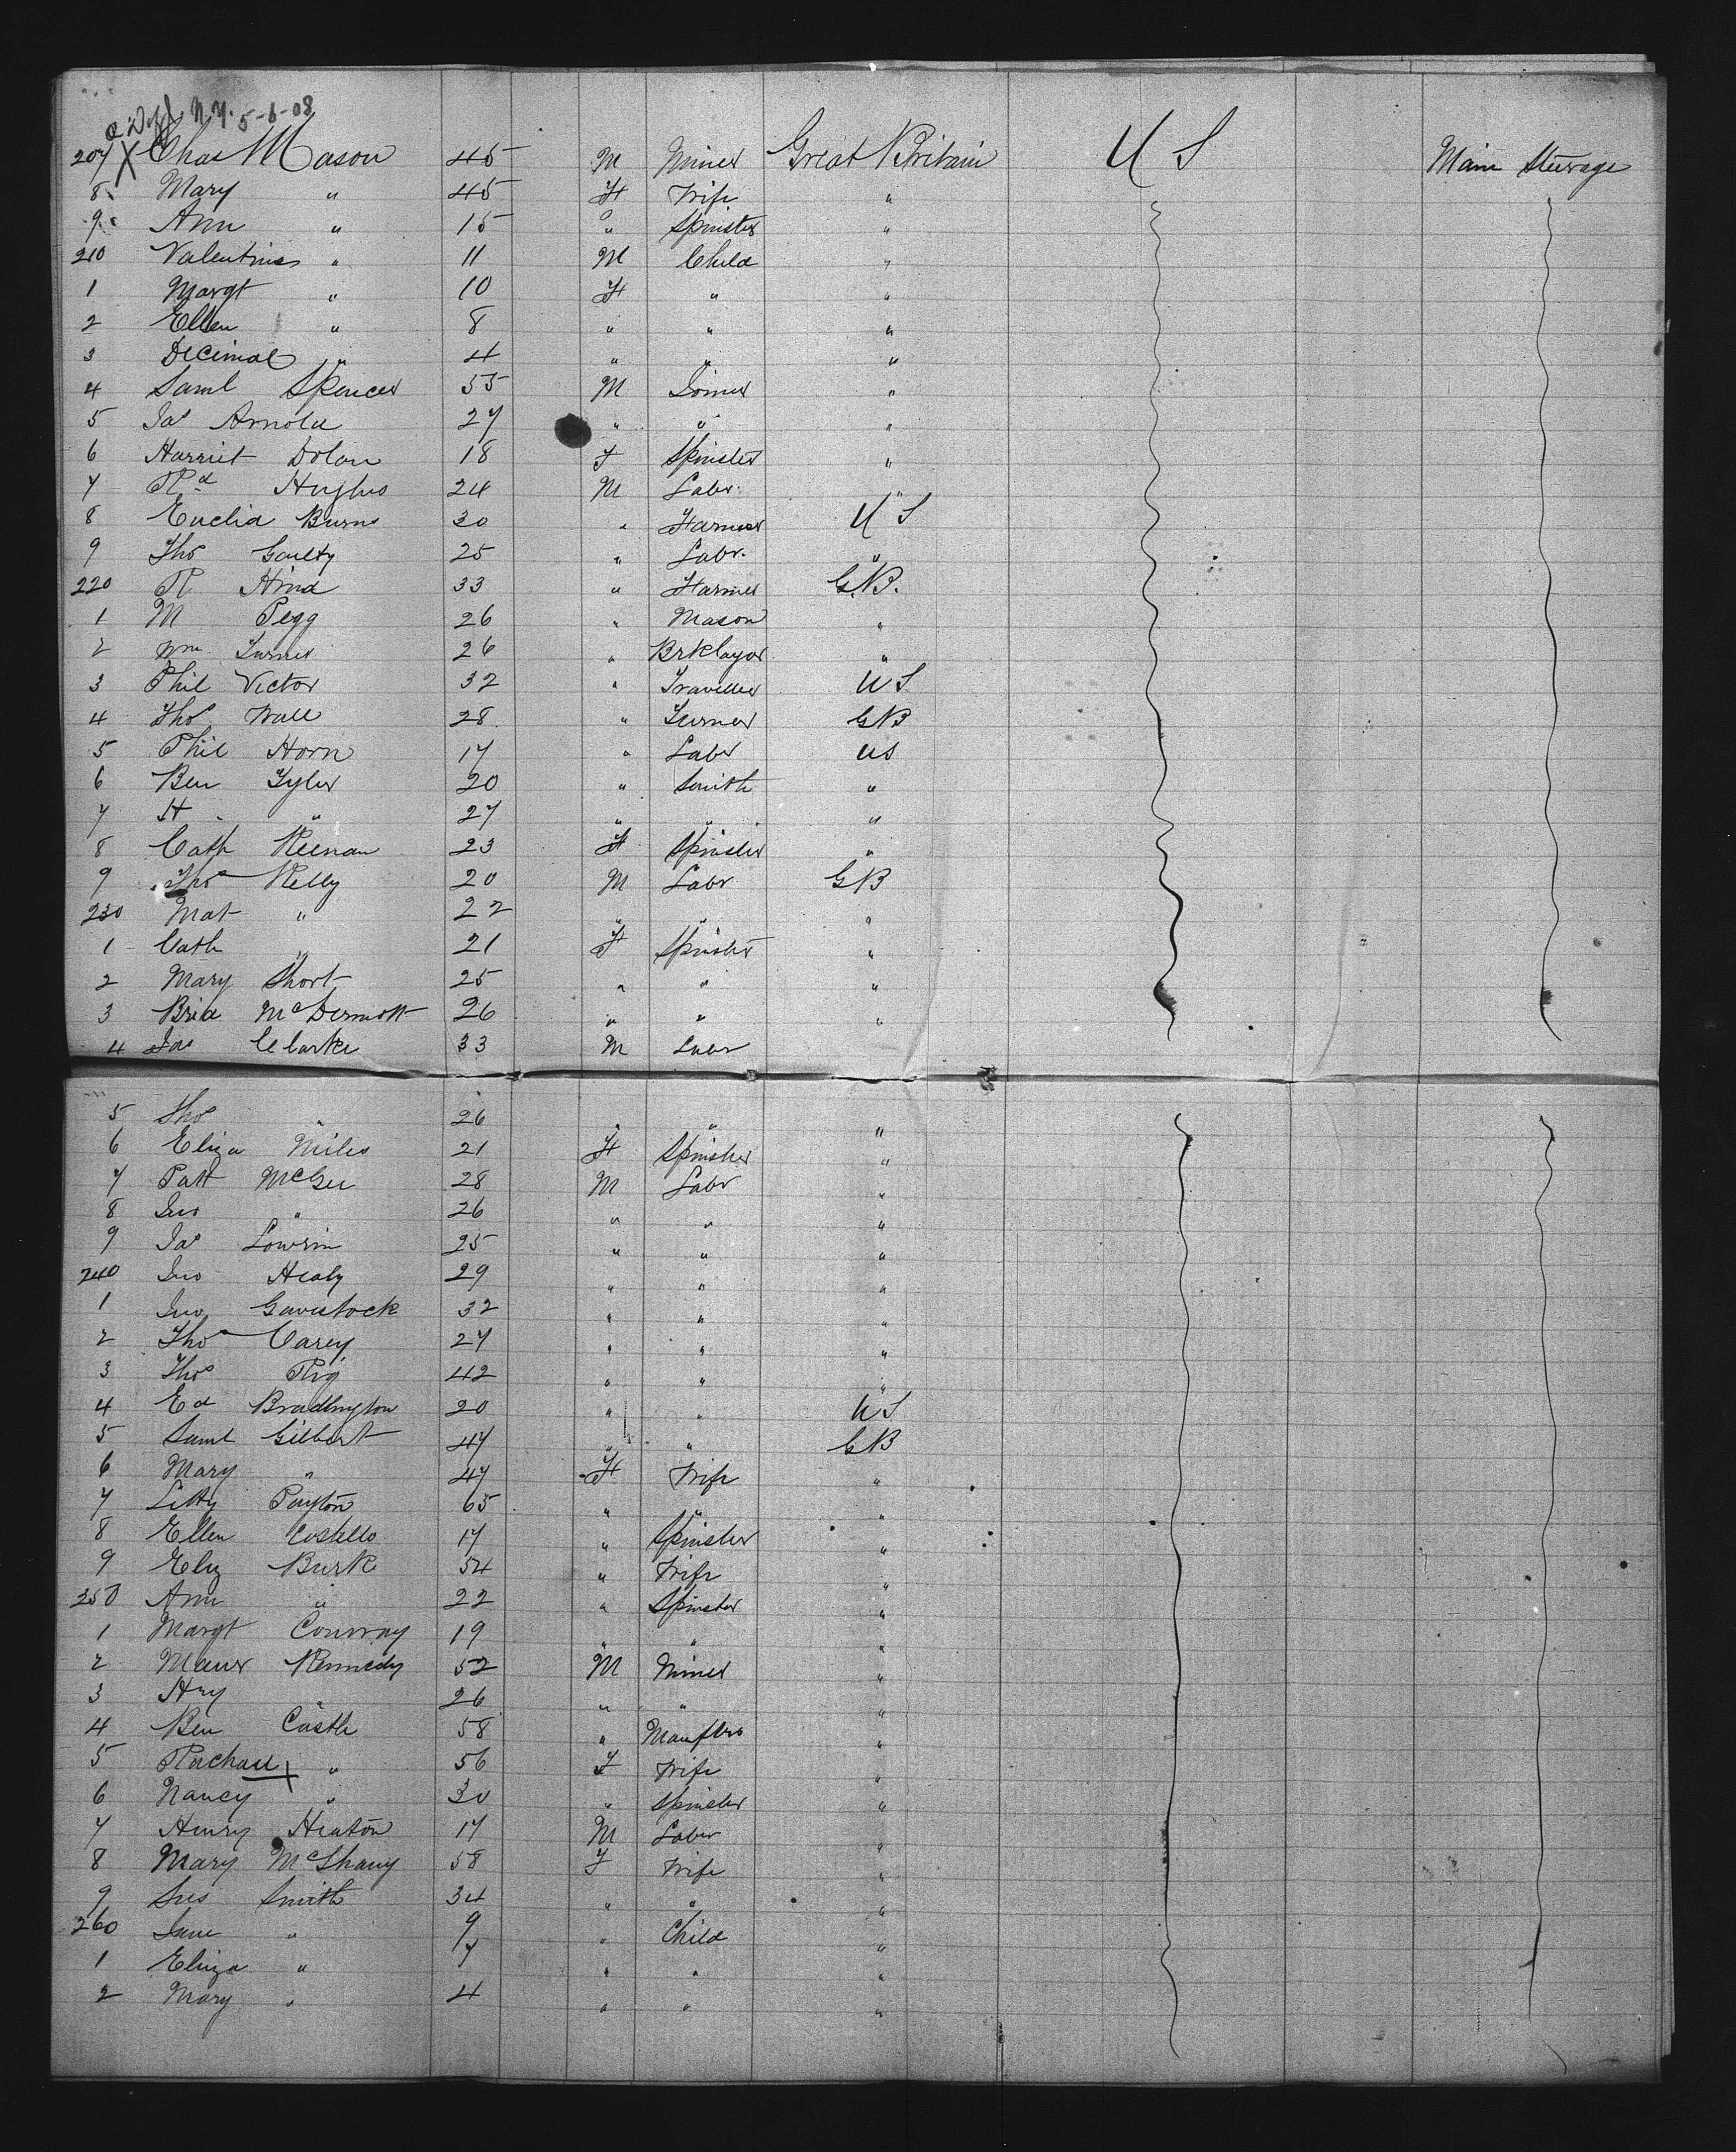 N.Y. 5-6-08
207 X Chas Mason 45 M Miner Great Britain U S Main Steerage
8 Mary " 45 F Wife "
9 Ann " 15 " Spinster "
210 Valentine " 11 M Child "
1 Margt " 10 F " "
2 Ellen " 8 " " "
3 Decimal " 4 " " "
4 Saml Spencer 55 M Joiner "
5 Jas Arnold 27 " " "
6 Harriet Dolan 18 F Spinster "
7 Rd Hughes 24 M Labr "
8 Euclid Burns 30 " Farmer U S
9 Thos Gaulty 25 " Labr. "
220 R Hind 33 " Farmer G.B.
1 M Pegg 26 " Mason "
2 Wm Turner 26 " Brklayor "
3 Phil Victor 32 " Traveller U S
4 Thos Wall 28 " Turner GB
5 Phil Horn 17 " Labr US
6 Ben Tyler 20 " Smith "
7 H " 27 " " "
8 Cath Keenan 23 F Spinster "
9 Thos Kelly 20 M Labr GB
230 Mat " 22 " " "
1 Cath " 21 F Spinster "
2 Mary Short 25 " " "
3 Brid McDermott 26 " " "
4 Jas Clarke 33 M Labr
5 Thos " 26 " " "
6 Eliza Miles 21 F Spinster "
7 Patt McGee 28 M Labr "
8 Jno " 26 " " "
9 Jas Lowrin 25 " " "
240 Jno Healy 29 " " "
1 Jno Gavistock 32 " " "
2 Thos Carey 27 " " "
3 Thos 42 " " "
4 Ed Bradlington 20 " " U S
5 Saml Gilbert 47 " " GB
6 Mary " 47 F Wife "
7 Litty Payton 65 " " "
8 Ellen Costello 17 " Spinster "
9 Eliz Burk 54 " Wife "
250 Ann " 22 " Spinster "
1 Margt Conway 19 " " "
2 Maur Kennedy 52 M Miner "
3 Hry " 26 " " "
4 Ben Castle 58 " "
5 Rachael " 56 F Wife "
6 Nancy " 30 " Spinster "
7 Henry Heaton 17 M Labr "
8 Mary McShany 58 F Wife "
9 Smith 34 " " "
260 Jane " 9 " Child "
1 Eliza " 7 " " "
2 Mary " 4 " " "